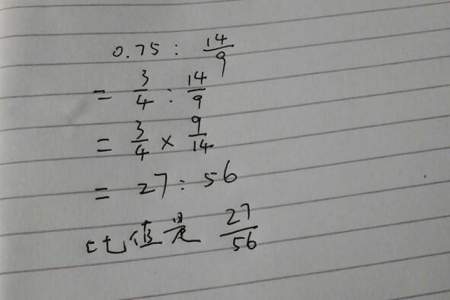 0.75 : 14/9
= 3/4 : 14/9
= 3/4 × 9/14
= 27 : 56
比值是 27/56